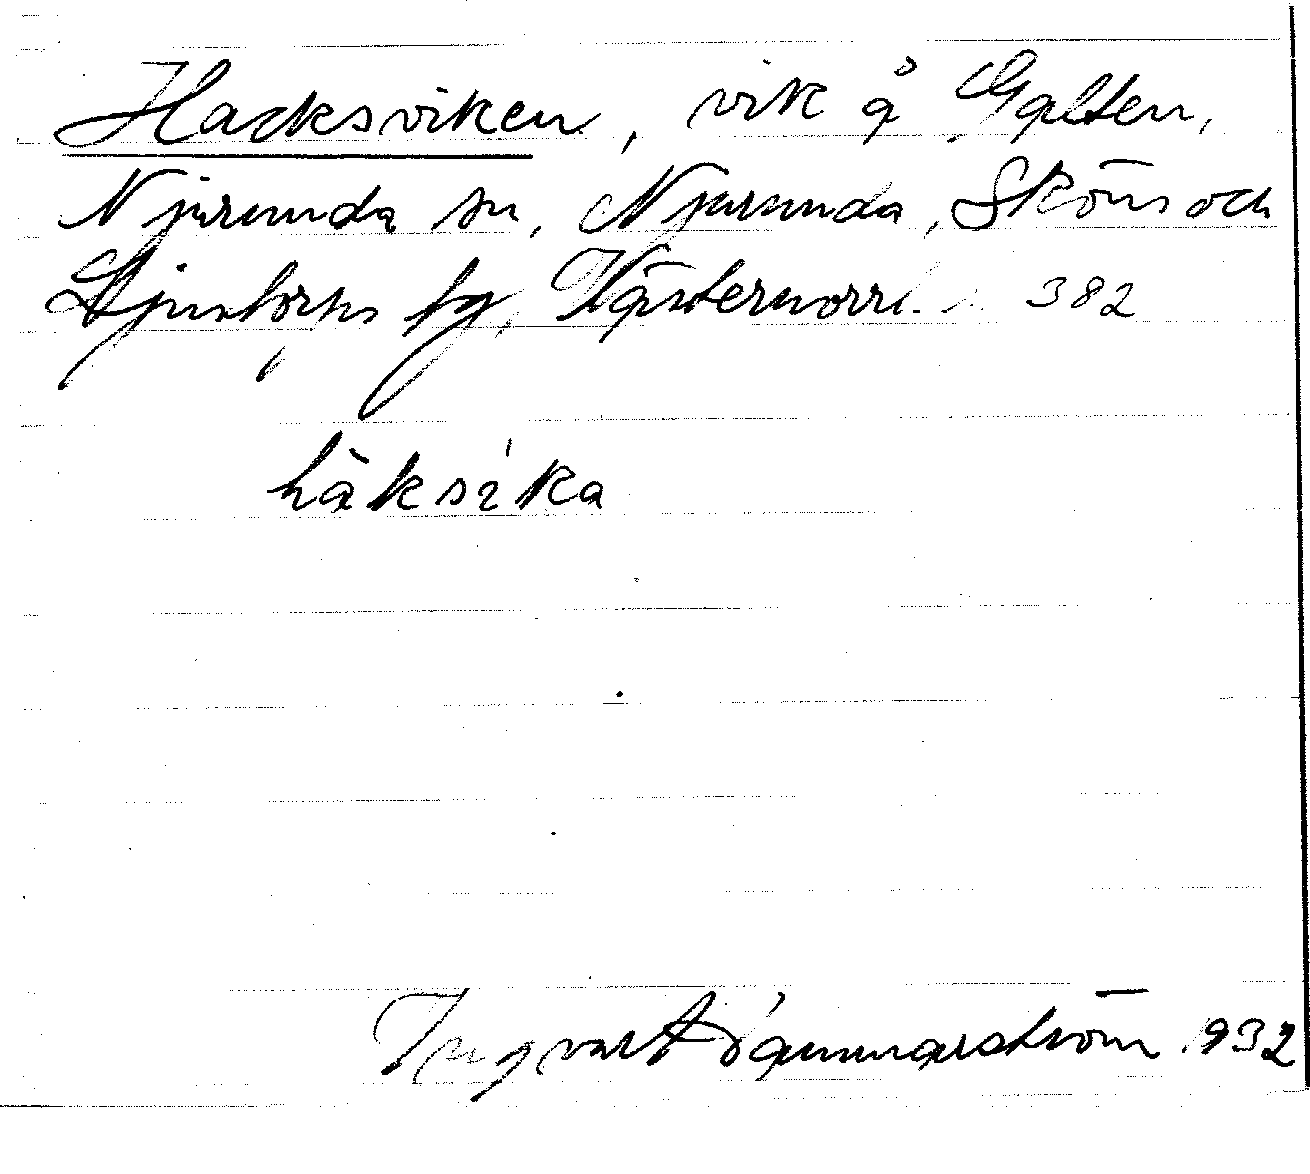 Hacksviken, vik å Galten,
Njurunda sn, Njurunda, Sköns och
Ljustorps tg, Västernorrl. l. 382
häksíka
Ingvar Dammarström 1932